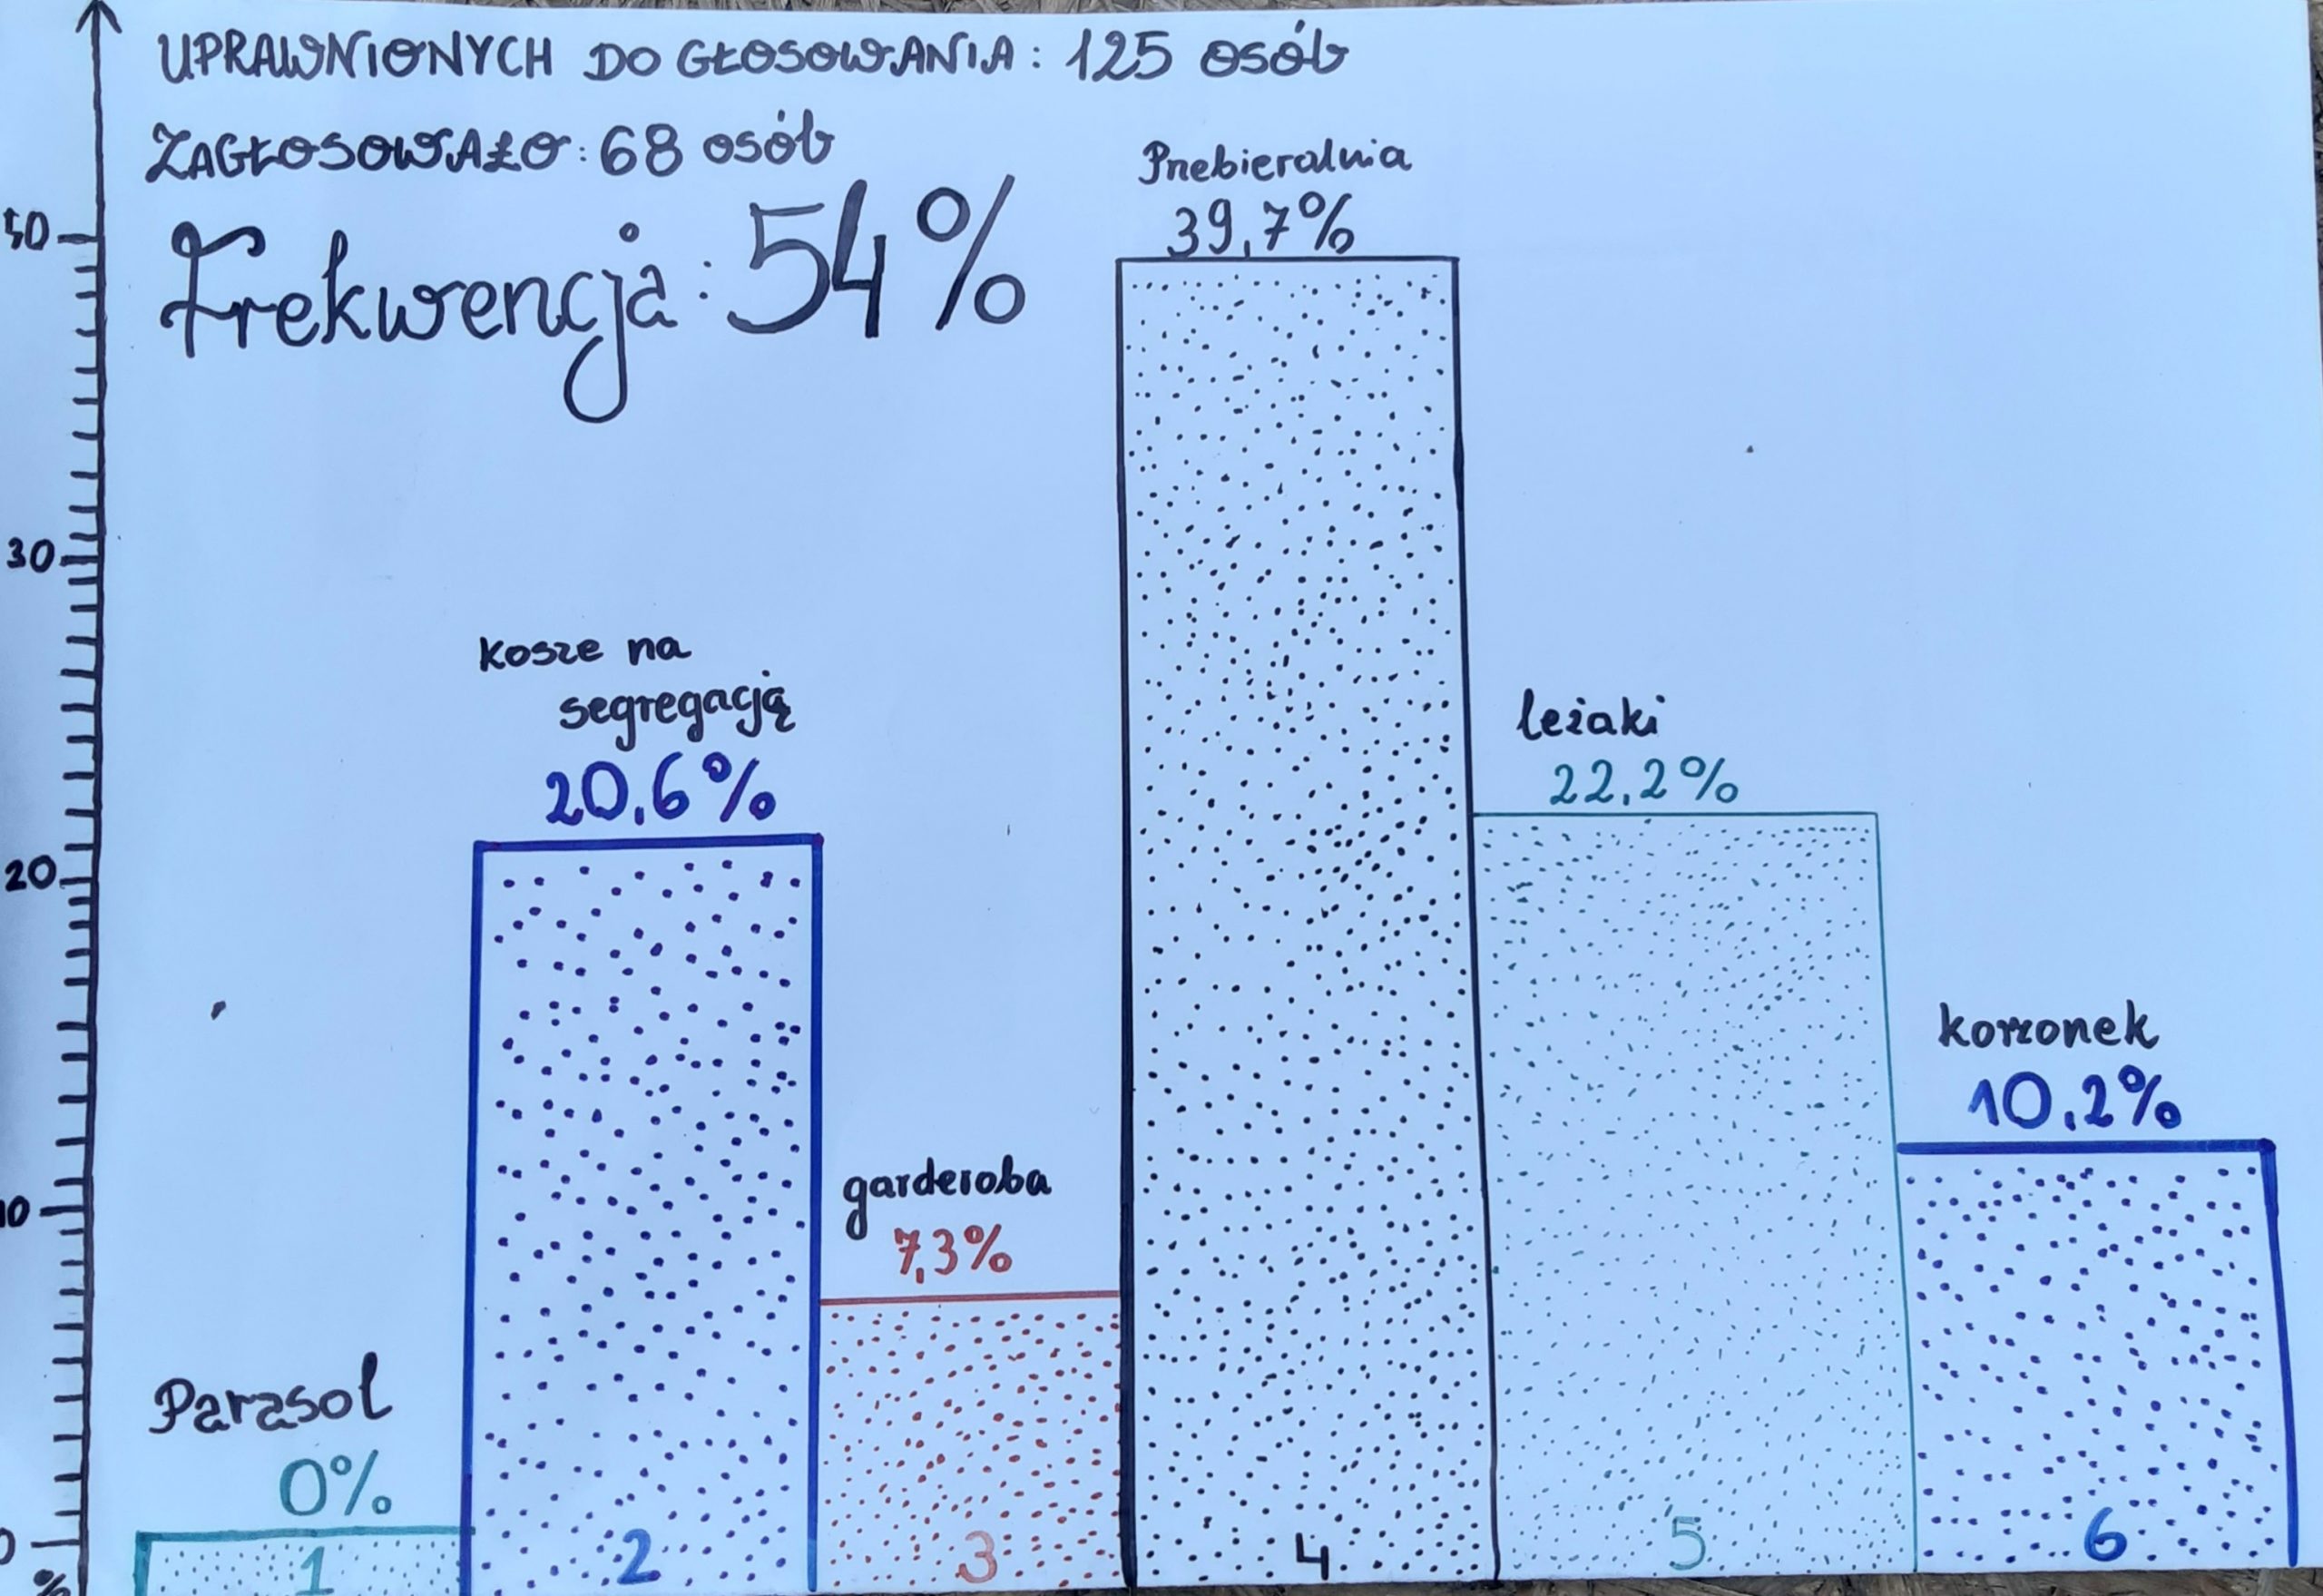 UPRAWNIONYCH DO GŁOSOWANIA: 125 osób
ZAGŁOSOWAŁO: 68 osób
Frekwencja: 54%
Przebieralnia
39,7%
40
30
kosze na
segregację
20,6%
leżaki
22,2%
20
korzonek
10,2%
garderoba
7,3%
10
Parasol
0%
0
%
1
2
3
4
5
6